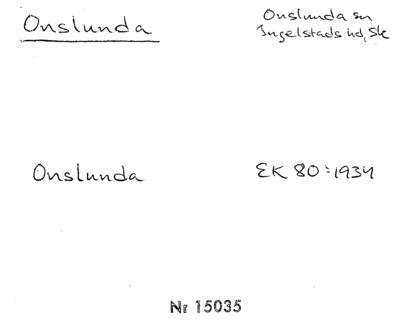 Onslunda
Onslunda sn
Ingelstads hd, Sk
Onslunda
EK 80:1934
Nr 15035